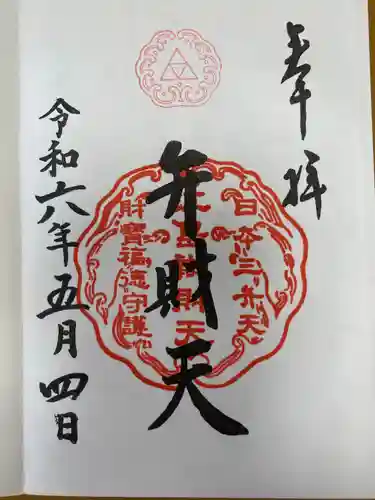 奉拝
日本三弁天
弁財天
財寶福徳守護
令和六年五月四日